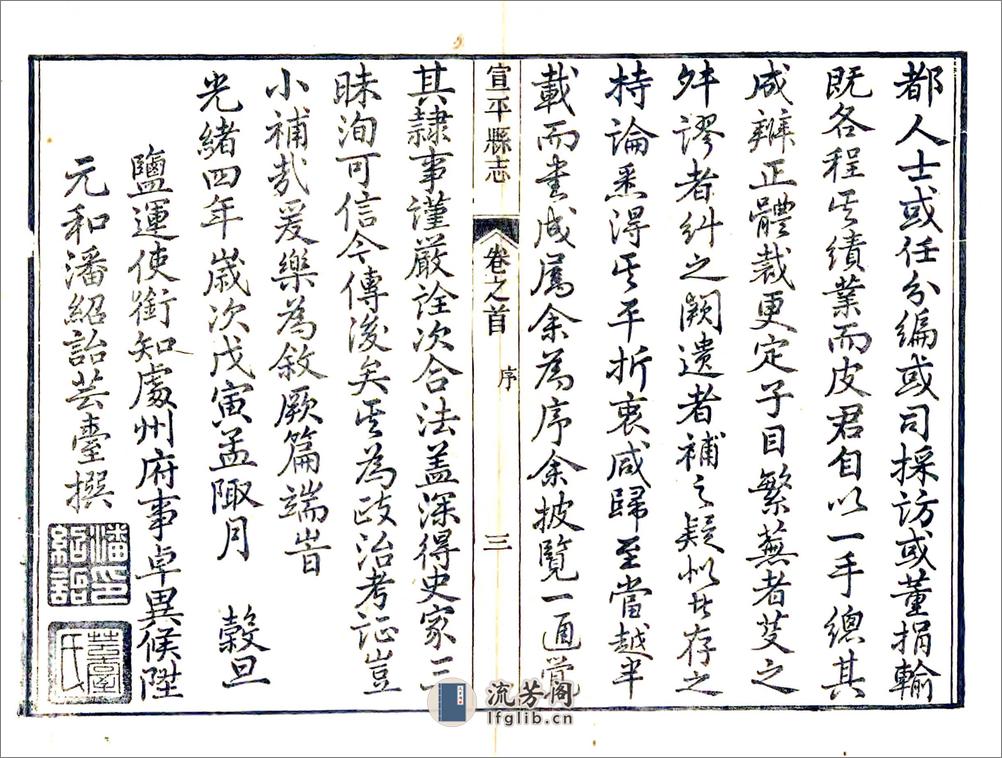 都人士或任分編或司採訪或董捐輸
既各程其績業而皮君自以一手總其
成辨正體裁更定子目繁蕪者芟之
舛謬者糾之闕遺者補之疑似者存之
持論悉得其平折衷咸歸至當越半
載而書成屬余為序余披覽一通覺
宣平縣志
卷之首
序
三
其隸事謹嚴詮次合法蓋深得史家三
昧洵可信今傳後矣其為政治考証豈
小補哉爰樂為敘厥篇端峕
光緒四年歲次戊寅孟陬月 穀旦
鹽運使銜知處州府事卓異候陞
元和潘紹詒芸臺撰
潘印紹詒
芸臺氏
流芳阁
lfglib.cn